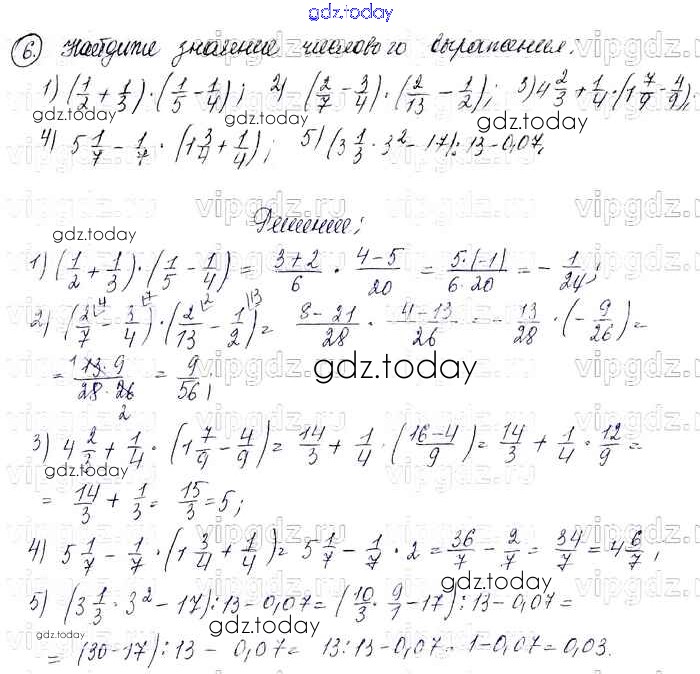 gdz.today
6. Найдите значение числового выражения:
1) (1/2 + 1/3) · (1/5 - 1/4); 2) (2/7 - 3/4) · (2/13 - 1/2); 3) 4 2/3 + 1/4 · (1 7/9 - 4/9);
gdz.today
4) 5 1/7 - 1/7 · (1 3/4 + 1/4); 5) (3 1/3 · 3² - 17) : 13 - 0,07.
vipgdz.ru vipgdz.ru
Решение:
gdz.today
1) (1/2 + 1/3) · (1/5 - 1/4) = 3+2/6 · 4-5/20 = 5·(-1)/6·20 = - 1/24;
2) (2/7 - 3/4) · (2/13 - 1/2) = 8-21/28 · 4-13/26 = - 13/28 · (- 9/26) =
= 13·9/28·26 = 9/56;
gdz.today
3) 4 2/3 + 1/4 · (1 7/9 - 4/9) = 14/3 + 1/4 · (16-4/9) = 14/3 + 1/4 · 12/9 =
gdz.today
= 14/3 + 1/3 = 15/3 = 5;
4) 5 1/7 - 1/7 · (1 3/4 + 1/4) = 5 1/7 - 1/7 · 2 = 36/7 - 2/7 = 34/7 = 4 6/7;
gdz.today
5) (3 1/3 · 3² - 17) : 13 - 0,07 = (10/3 · 9/1 - 17) : 13 - 0,07 =
gdz.today
= (30-17) : 13 - 0,07 = 13:13 - 0,07 = 1-0,07 = 0,03.
gdz.today